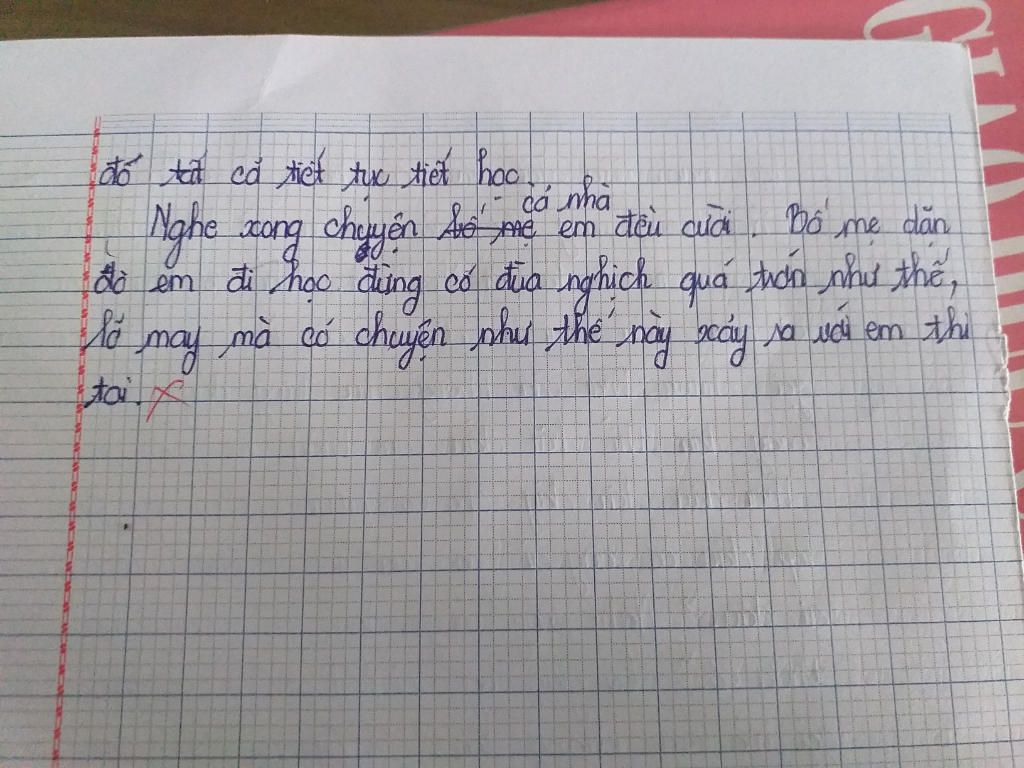 GIÁO TRÌNH
đó tất cả tiết tục tiết học.
Nghe xong chuyện bố mẹ cả nhà em đều cười. Bố mẹ dặn
dò em đi học đừng có đùa nghịch quá trớn như thế,
lỡ may mà có chuyện như thế này xảy ra với em thì
toi.